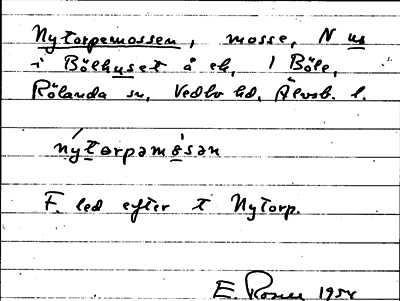 Nytorpemossen, mosse, N us
i Bölhuset å ek, 1 Böle,
Rölanda sn, Vedbo hd, Älvsb. l.
nýtorpəmósən
F. led efter t Nytorp.
E. Rosen 195